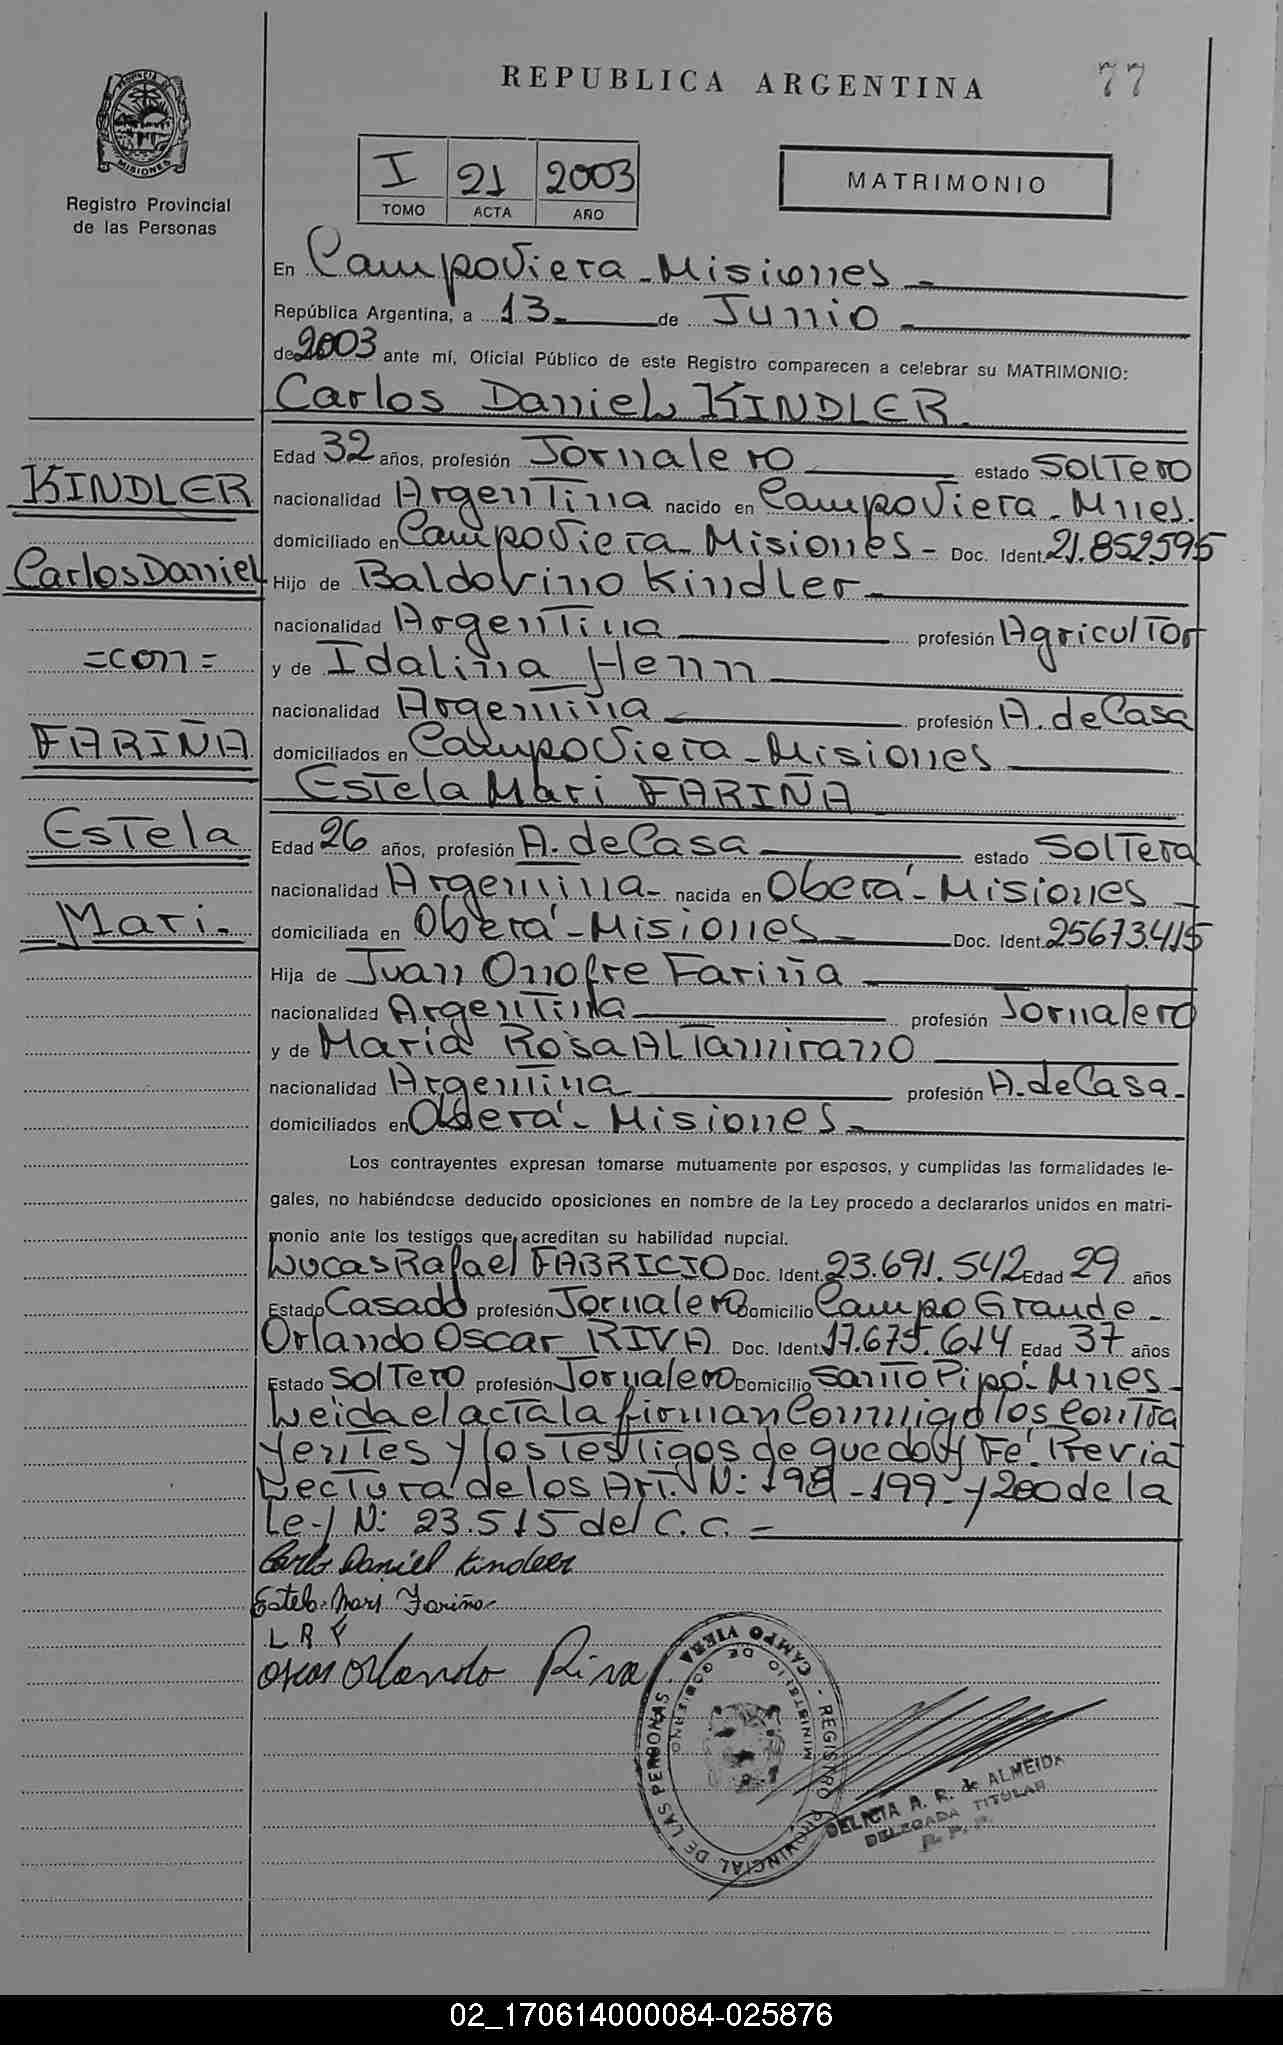 REPUBLICA ARGENTINA
77
PROVINCIA DE MISIONES
Registro Provincial
de las Personas
I 21 2003
TOMO ACTA AÑO
MATRIMONIO
En Campo Viera - Misiones -
República Argentina, a 13 - de Junio -
de 2003 ante mí, Oficial Público de este Registro comparecen a celebrar su MATRIMONIO:
Carlos Daniel KINDLER.
Edad 32 años, profesión Jornalero estado Soltero
nacionalidad Argentina nacido en Campo Viera - Mnes.
domiciliado en Campo Viera - Misiones - Doc. Ident. 21.852.595
Hijo de Baldovino Kindler -
nacionalidad Argentina profesión Agricultor
y de Idalina Henn
nacionalidad Argentina profesión A. de Casa
domiciliados en Campo Viera - Misiones
Estela Mari FARIÑA
Edad 26 años, profesión A. de Casa estado Soltera
nacionalidad Argentina - nacida en Oberá - Misiones -
domiciliada en Oberá - Misiones - Doc. Ident. 25673415
Hija de Juan Onofre Fariña
nacionalidad Argentina profesión Jornalero
y de Maria Rosa ALTamirano
nacionalidad Argentina profesión A. de Casa -
domiciliados en Oberá - Misiones -
KINDLER
Carlos Daniel
= con =
FARIÑA
Estela
Mari.
Los contrayentes expresan tomarse mutuamente por esposos, y cumplidas las formalidades le-
gales, no habiéndose deducido oposiciones en nombre de la Ley procedo a declararlos unidos en matri-
monio ante los testigos que acreditan su habilidad nupcial.
Lucas Rafael FABRICIO Doc. Ident. 23.691.542 Edad 29 años
Estado Casado profesión Jornalero Domicilio Campo Grande -
Orlando Oscar RIVA Doc. Ident. 17.675.614 Edad 37 años
Estado Soltero profesión Jornalero Domicilio Santo Pipó - Mnes -
Leida el acta la firman Conmigo los Contra
yentes y los testigos de que doy Fé. Previa
Lectura de los Art. N: 198 - 199 - y 200 de la
Ley N: 23.515 del C.C. =
Carlos Daniel Kindler
Estela Mari Fariña
L R F
Oscar Orlando Riva
REGISTRO PROVINCIAL DE LAS PERSONAS - CAMPO VIERA -
MINISTERIO DE GOBIERNO
DELICIA A. R. de ALMEIDA
DELEGADA TITULAR
R. P. P.
02_170614000084-025876